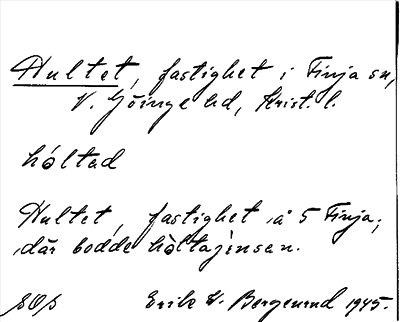 Hultet, fastighet i Finja sn,
V. Göinge hd, Krist. l.
hóltad
Hultet, fastighet å 5 Finja;
där bodde hòltajìnsen.
Erik K. Bergenrud 1945.